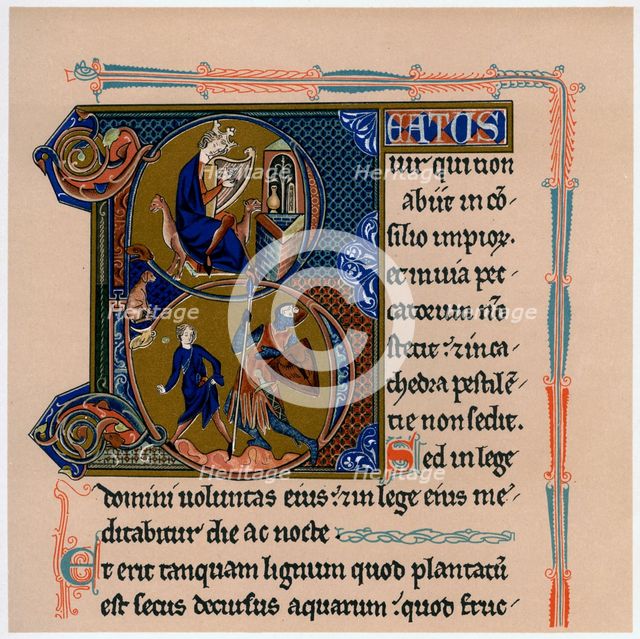 BEATUS
uir qui non
abiit in cõ-
silio impior.
et in uia pec-
catorum nõ
stetit : & in ca-
thedra pestilẽ-
tie non sedit.
Sed in lege
domini uoluntas eius : & in lege eius me-
ditabitur die ac nocte.
Et erit tanquam lignum quod plantatũ
est secus decursus aquarum : quod fruc-
Heritage
Heritage
Heritage
Heritage
Heritage
Heritage
Heritage
Heritage
Heritage